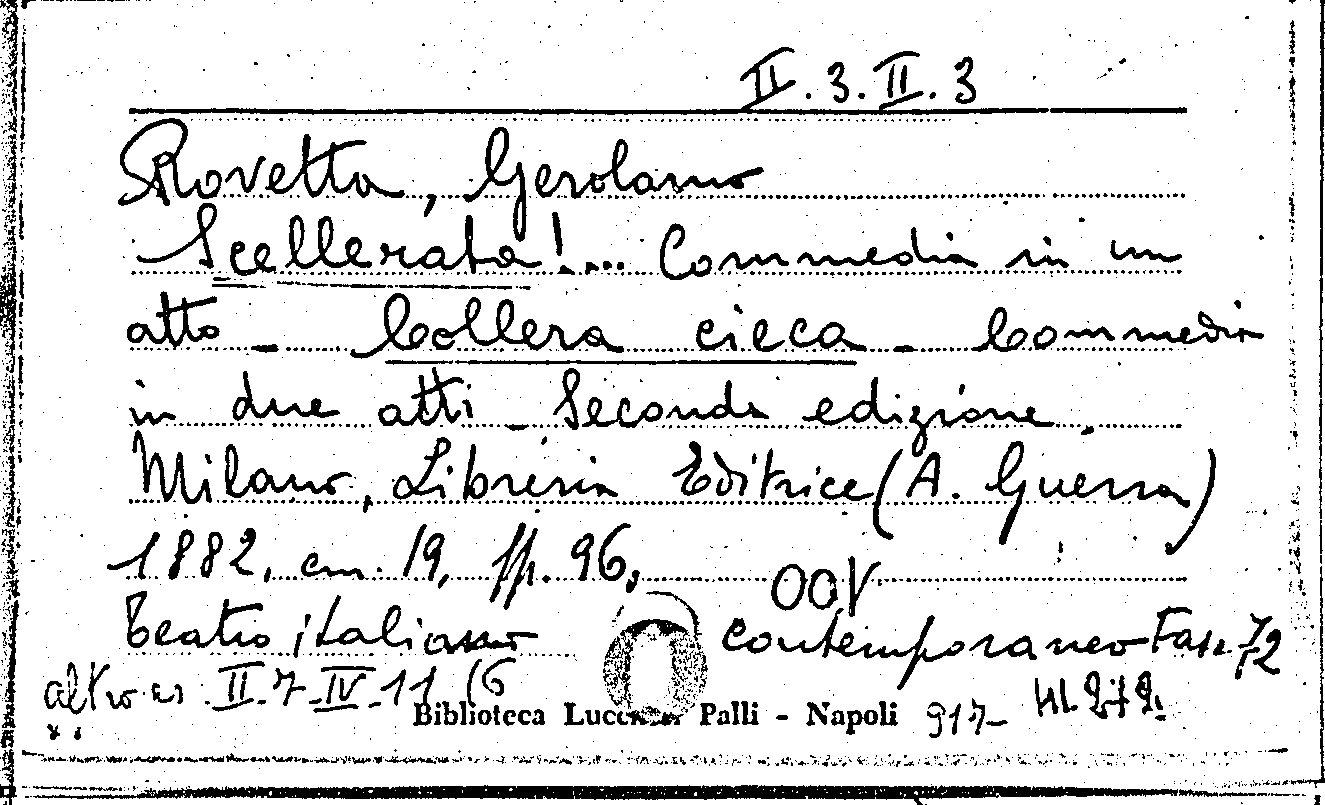 II.3.II.3
Rovetta, Gerolamo
Scellerata!.... Commedia in un
atto - Collera cieca - Commedia
in due atti - Seconda edizione.
Milano, Libreria Editrice (A. Guerra)
1882, cm. 19, pp. 96,
OOV
Teatro italiano contemporaneo Fasc. 72
altro es. II.7.IV.11 (6
Biblioteca Lucchesi Palli - Napoli 917-